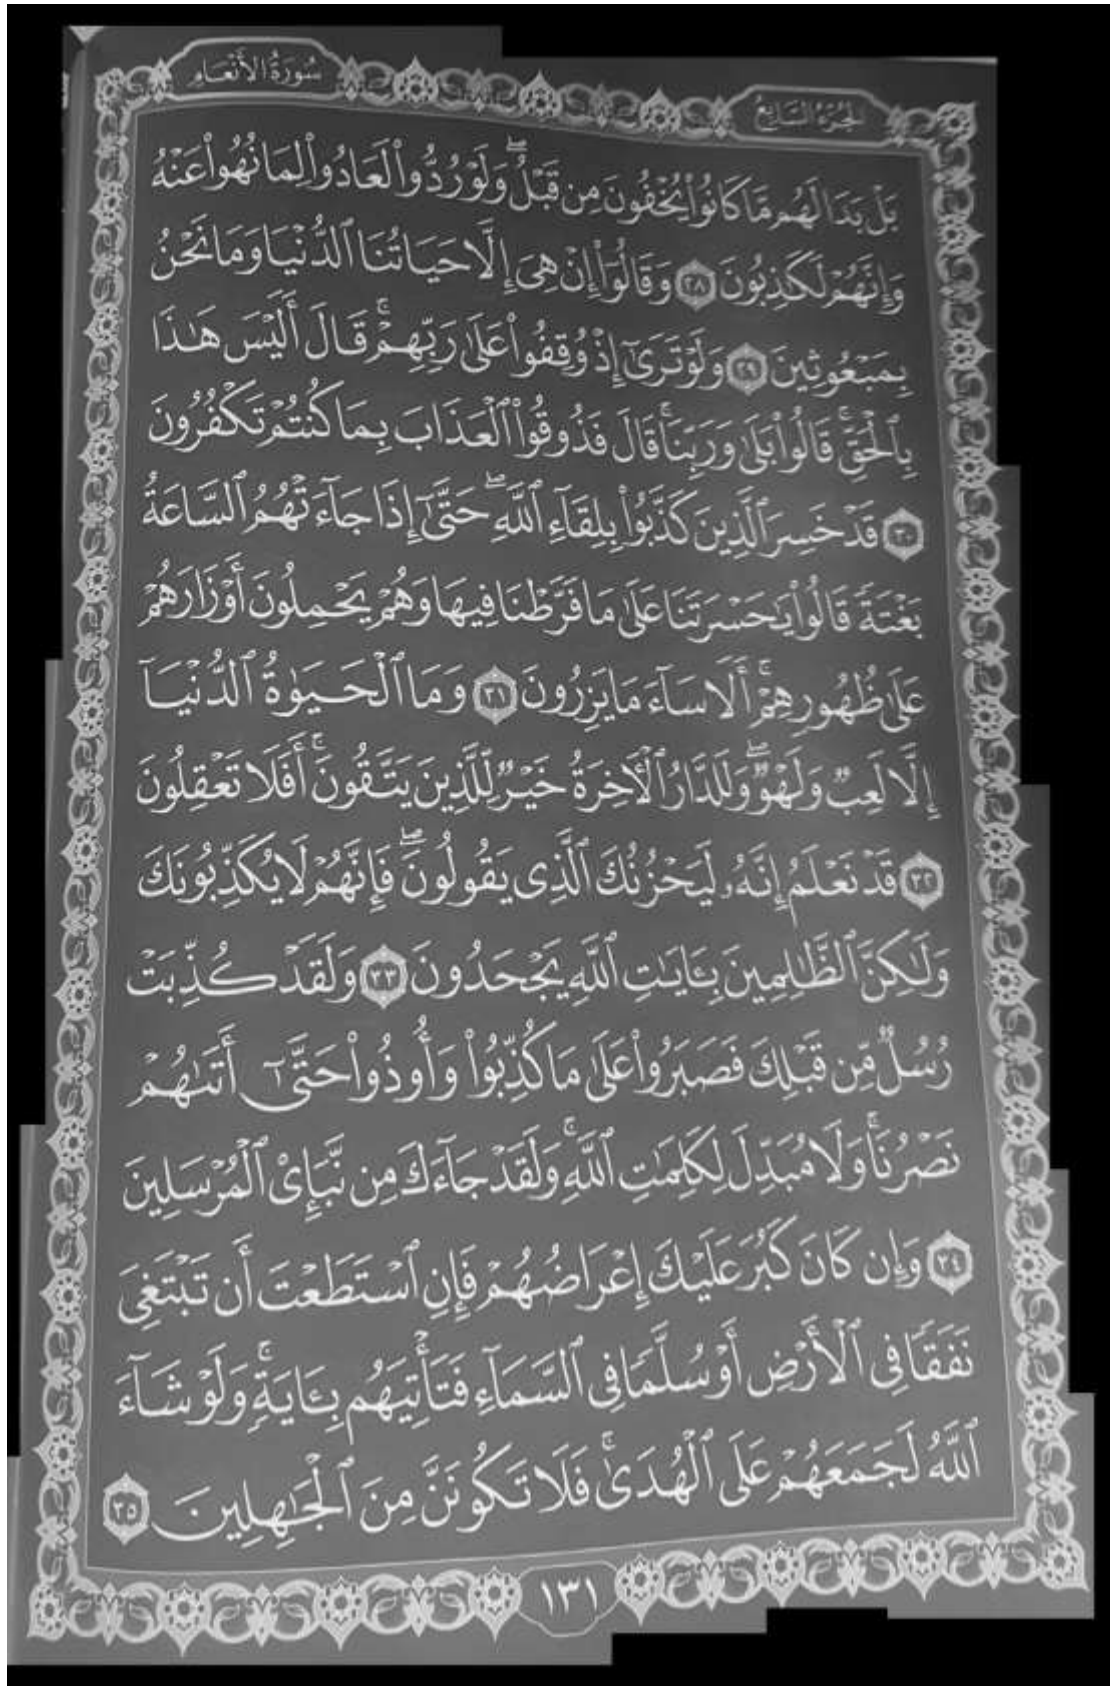 سُورَةُ الأَنْعَامِ
الجُزْءُ السَّابِعُ
بَلْ بَدَا لَهُم مَّا كَانُوا۟ يُخْفُونَ مِن قَبْلُ ۖ وَلَوْ رُدُّوا۟ لَعَادُوا۟ لِمَا نُهُوا۟ عَنْهُ
وَإِنَّهُمْ لَكَـٰذِبُونَ ٢٨ وَقَالُوٓا۟ إِنْ هِىَ إِلَّا حَيَاتُنَا ٱلدُّنْيَا وَمَا نَحْنُ
بِمَبْعُوثِينَ ٢٩ وَلَوْ تَرَىٰٓ إِذْ وُقِفُوا۟ عَلَىٰ رَبِّهِمْ ۚ قَالَ أَلَيْسَ هَـٰذَا
بِٱلْحَقِّ ۚ قَالُوا۟ بَلَىٰ وَرَبِّنَا ۚ قَالَ فَذُوقُوا۟ ٱلْعَذَابَ بِمَا كُنتُمْ تَكْفُرُونَ
٣٠ قَدْ خَسِرَ ٱلَّذِينَ كَذَّبُوا۟ بِلِقَآءِ ٱللَّهِ ۖ حَتَّىٰٓ إِذَا جَآءَتْهُمُ ٱلسَّاعَةُ
بَغْتَةً قَالُوا۟ يَـٰحَسْرَتَنَا عَلَىٰ مَا فَرَّطْنَا فِيهَا وَهُمْ يَحْمِلُونَ أَوْزَارَهُمْ
عَلَىٰ ظُهُورِهِمْ ۚ أَلَا سَآءَ مَا يَزِرُونَ ٣١ وَمَا ٱلْحَيَوٰةُ ٱلدُّنْيَآ
إِلَّا لَعِبٌ وَلَهْوٌ ۖ وَلَلدَّارُ ٱلْـَٔاخِرَةُ خَيْرٌ لِّلَّذِينَ يَتَّقُونَ ۚ أَفَلَا تَعْقِلُونَ
٣٢ قَدْ نَعْلَمُ إِنَّهُۥ لَيَحْزُنُكَ ٱلَّذِى يَقُولُونَ ۖ فَإِنَّهُمْ لَا يُكَذِّبُونَكَ
وَلَـٰكِنَّ ٱلظَّـٰلِمِينَ بِـَٔايَـٰتِ ٱللَّهِ يَجْحَدُونَ ٣٣ وَلَقَدْ كُذِّبَتْ
رُسُلٌ مِّن قَبْلِكَ فَصَبَرُوا۟ عَلَىٰ مَا كُذِّبُوا۟ وَأُوذُوا۟ حَتَّىٰٓ أَتَىٰهُمْ
نَصْرُنَا ۚ وَلَا مُبَدِّلَ لِكَلِمَـٰتِ ٱللَّهِ ۚ وَلَقَدْ جَآءَكَ مِن نَّبَإِى۟ ٱلْمُرْسَلِينَ
٣٤ وَإِن كَانَ كَبُرَ عَلَيْكَ إِعْرَاضُهُمْ فَإِنِ ٱسْتَطَعْتَ أَن تَبْتَغِىَ
نَفَقًا فِى ٱلْأَرْضِ أَوْ سُلَّمًا فِى ٱلسَّمَآءِ فَتَأْتِيَهُم بِـَٔايَةٍ ۚ وَلَوْ شَآءَ
ٱللَّهُ لَجَمَعَهُمْ عَلَى ٱلْهُدَىٰ ۚ فَلَا تَكُونَنَّ مِنَ ٱلْجَـٰهِلِينَ ٣٥
١٣١